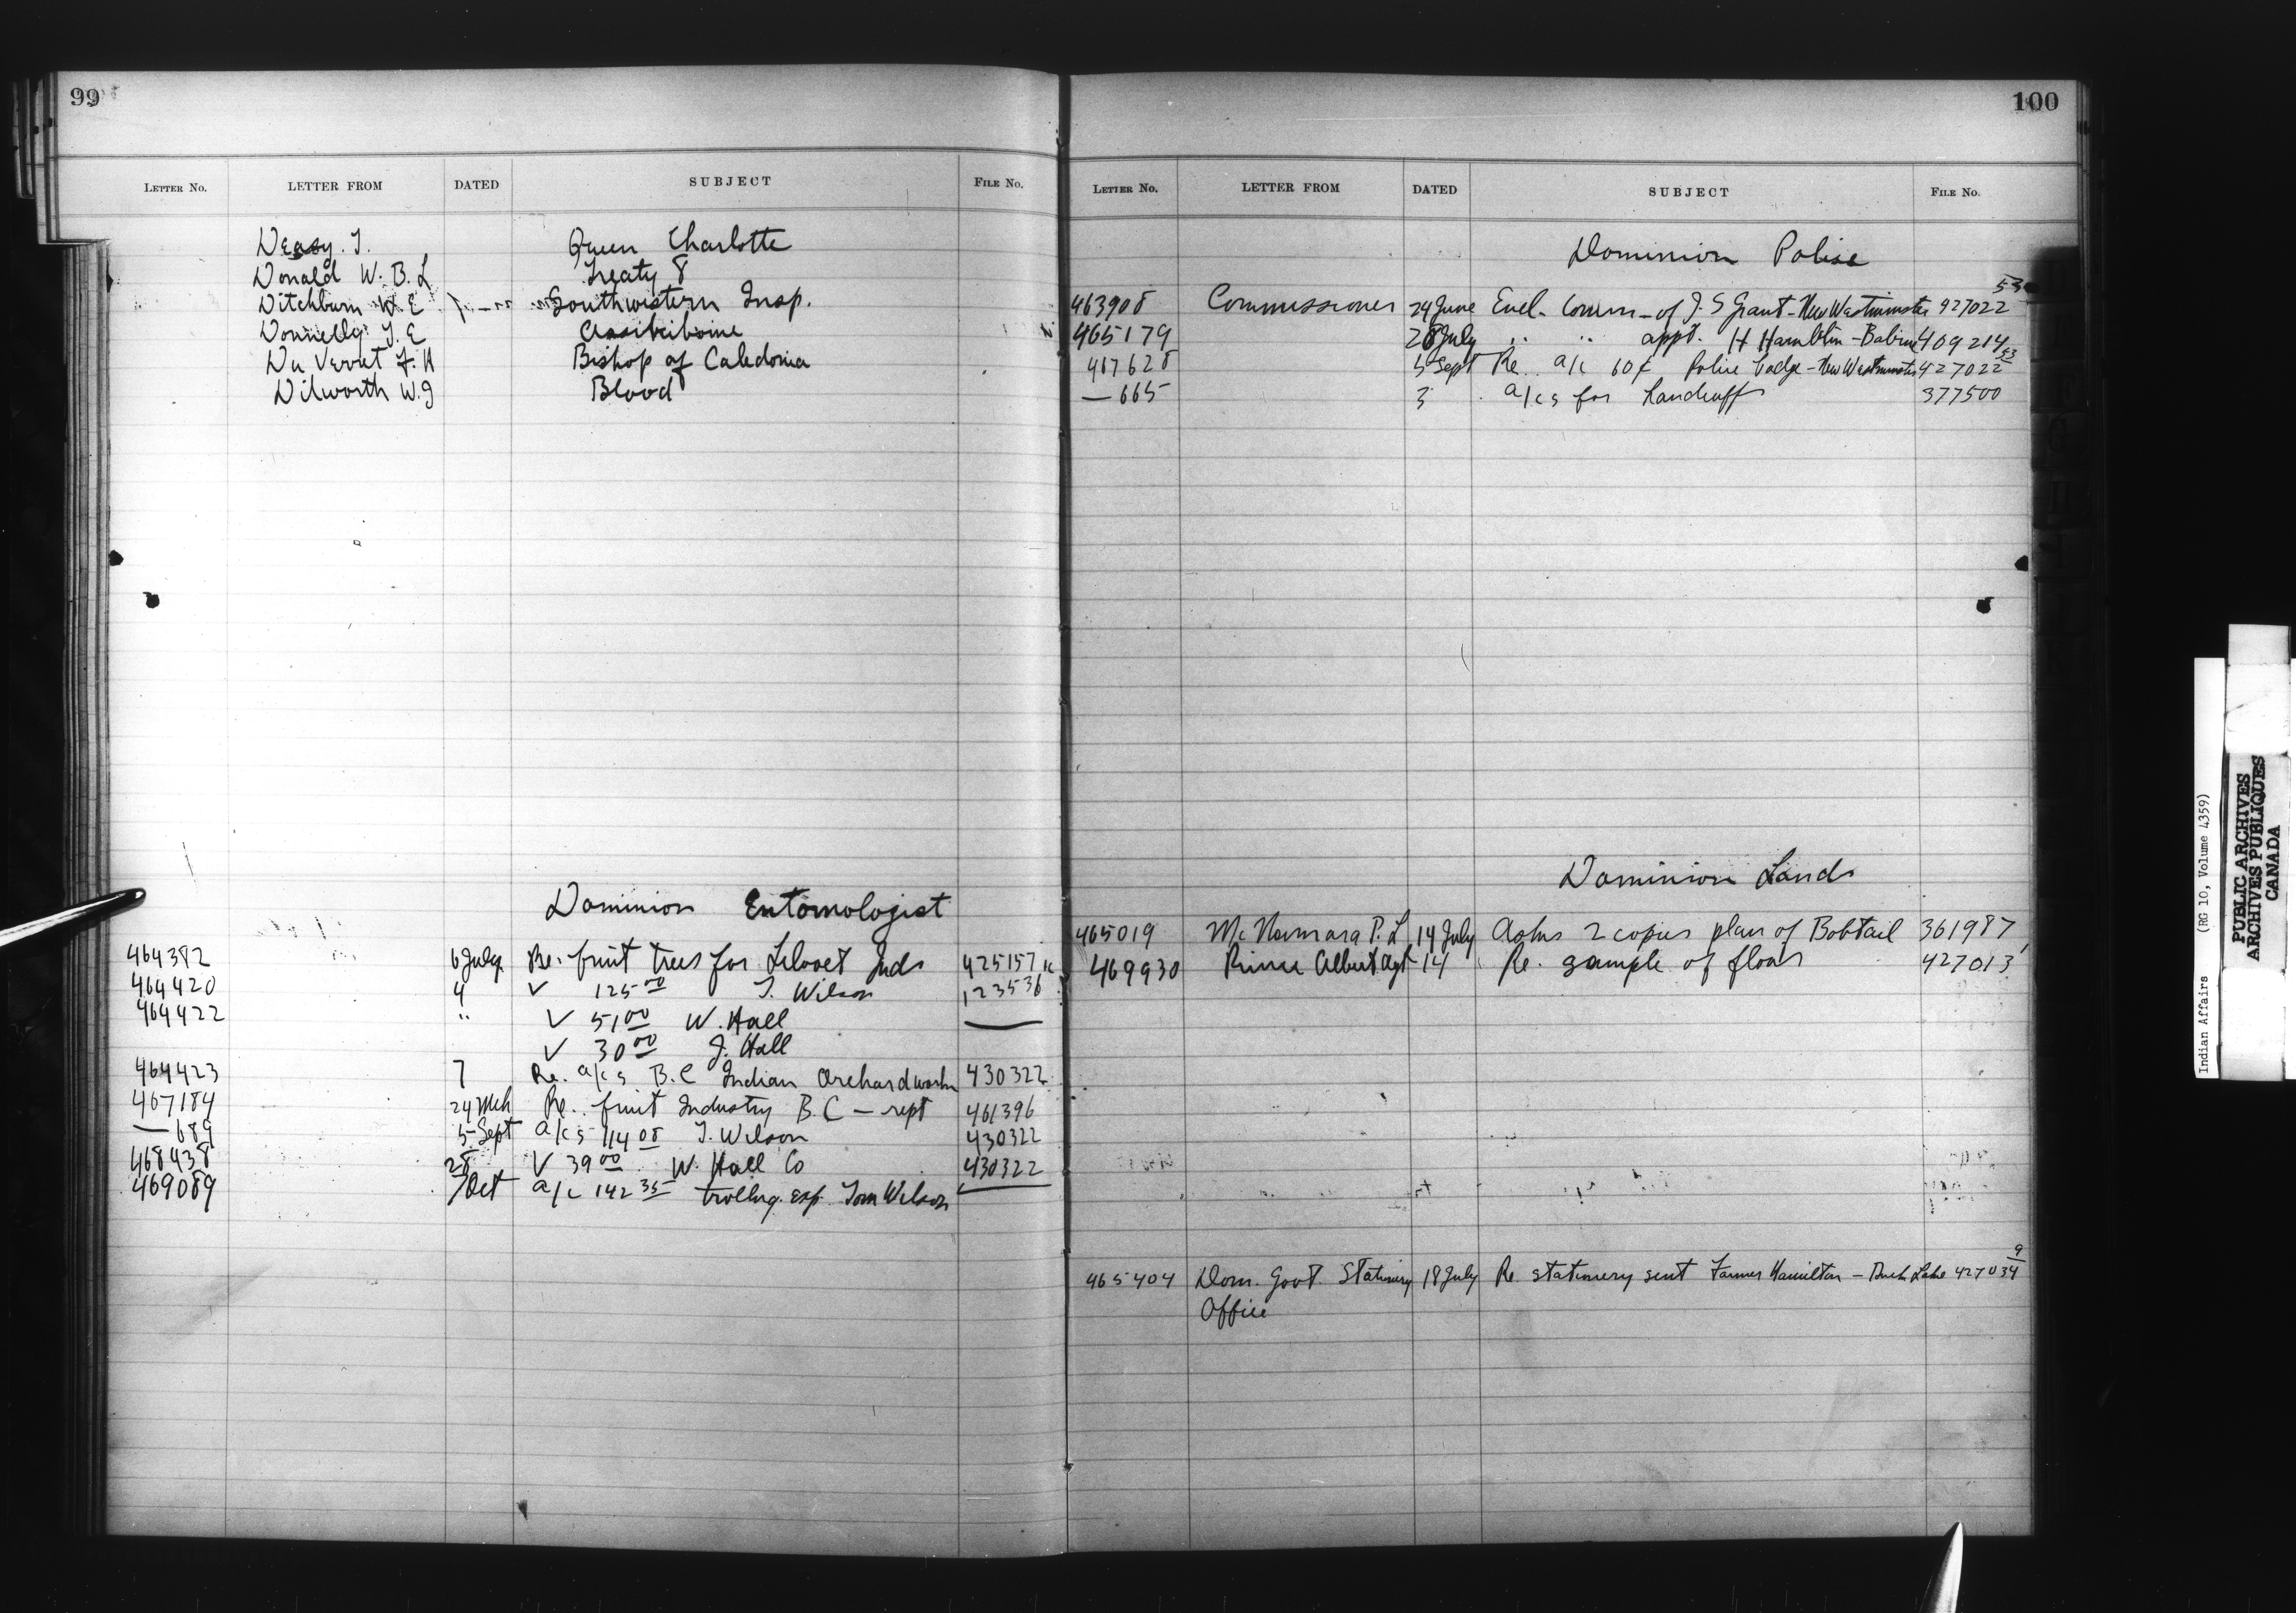 99
LETTER NO. LETTER FROM DATED SUBJECT FILE No.
Deasy. T. Queen Charlotte
Donald W. B. L Treaty 8
Ditchburn W. E Southwestern Insp.
Donnelly T. E Assiniboine
Du Vernet F. H Bishop of Caledonia
Dilworth W. J Blood
Dominion Entomologist
464382 6 July Re. fruit trees for Lilooet Inds 425157
464420 4 √ 125 00 T. Wilson 123536
464422 " √ 51 00 W. Hall —
√ 30 00 J. Hall
464423 7 Re. a/cs B.C Indian Orchard works 430322
467184 24 Mch Re. fruit Industry B.C — rept 461396
— 689 5 Sept a/cs 114 08 T. Wilson 430322
468438 28 √ 39 00 W. Hall Co 430322
469089 7 Oct a/c 142 35 trvllng. exp. Tom Wilson
100
LETTER NO. LETTER FROM DATED SUBJECT FILE No.
Dominion Police
463908 Commissioner 24 June Encl. Comm. of J. S Grant - New Westminster 427022 53
465179 28 July " " appt. H Hamblin - Babine 409214
467628 5 Sept Re. a/c 60¢ Police badge - New Westminster 427022 53
— 665 3 a/cs for handcuffs 377500
Dominion Lands
465019 McNamara P. L 14 July Asks 2 copies plan of Bobtail 361987
469930 Prince Albert Agt 14 Re. sample of flour 427013
465404 Dom. Govt. Stationery 18 July Re. stationery sent Farmer Hamilton - Duck Lake 427034 9
Office
Indian Affairs (RG 10, Volume 4359)
PUBLIC ARCHIVES
ARCHIVES PUBLIQUES
CANADA